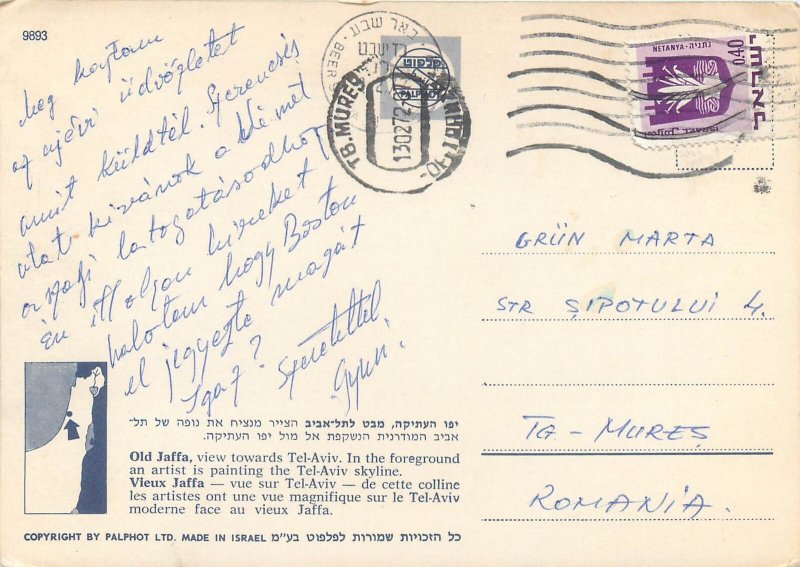 9893
Meg kaptam
az ujévi üdvözletet
amit küldtél. Szerencsés
utat kivánok a Német
országi latogatásodhoz
Én itt olyan hireket
halotam hogy Boston
el jegyezte magát
Igaz?
Szeretettel
Gyuri.
באר שבע
BEER
PALPHOT
TG. MUREȘ
130272
נתניה · NETANYA
0.40
ישראל
ISRAEL
GRÜN MARTA
STR ȘIPOTULUI 4.
TG - MUREȘ
ROMANIA.
יפו העתיקה, מבט לתל־אביב הצייר מנציח את נופה של תל־
אביב המודרנית הנשקפת אל מול יפו העתיקה.
Old Jaffa, view towards Tel-Aviv. In the foreground
an artist is painting the Tel-Aviv skyline.
Vieux Jaffa — vue sur Tel-Aviv — de cette colline
les artistes ont une vue magnifique sur le Tel-Aviv
moderne face au vieux Jaffa.
COPYRIGHT BY PALPHOT LTD. MADE IN ISRAEL כל הזכויות שמורות לפלפוט בע"מ